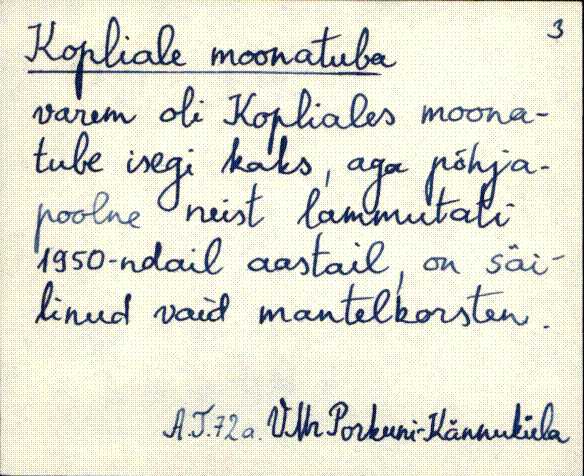 3
Kopliale moonatuba
varem oli Kopliales moona-
tube isegi kaks, aga põhja-
poolne neist lammutati
1950-ndail aastail, on säi-
linud vaid mantelkorsten.
A.T.72a. VMr Porkuni-Kännuküla